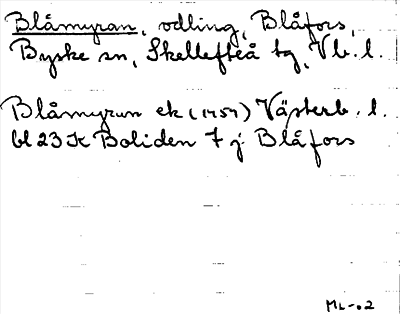 Blåmyran, odling, Blåfors,
Byske sn, Skellefteå tg, Vb. l.
Blåmyran ek (1959) Västerb. l.
bl 23 K Boliden 7 j Blåfors
ML-02